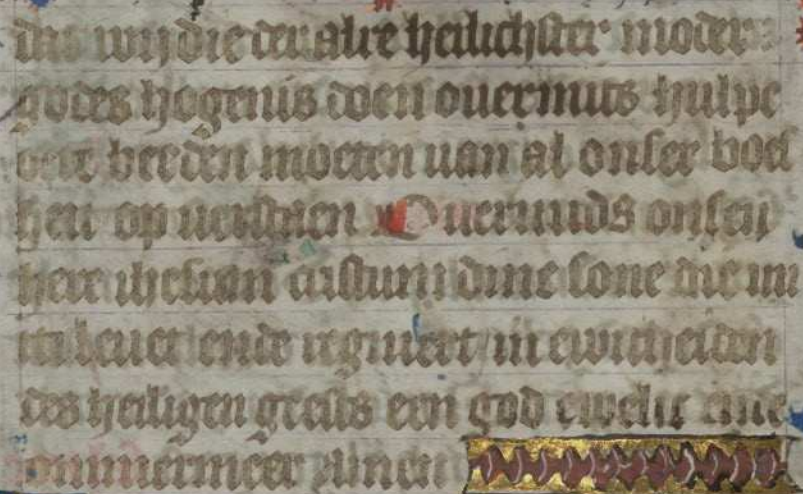 dat wij die der alre heilichster moder
godes hogenis doen ouermits hulpe
oere beeden moeten uan al onser boes
heit op uerstaen Ouermids onsen
here ihesum cristum dine sone die mit
di leuet ende regniert in ewicheiden
des heiligen geests een god ewelic ende
ommermeer Amen